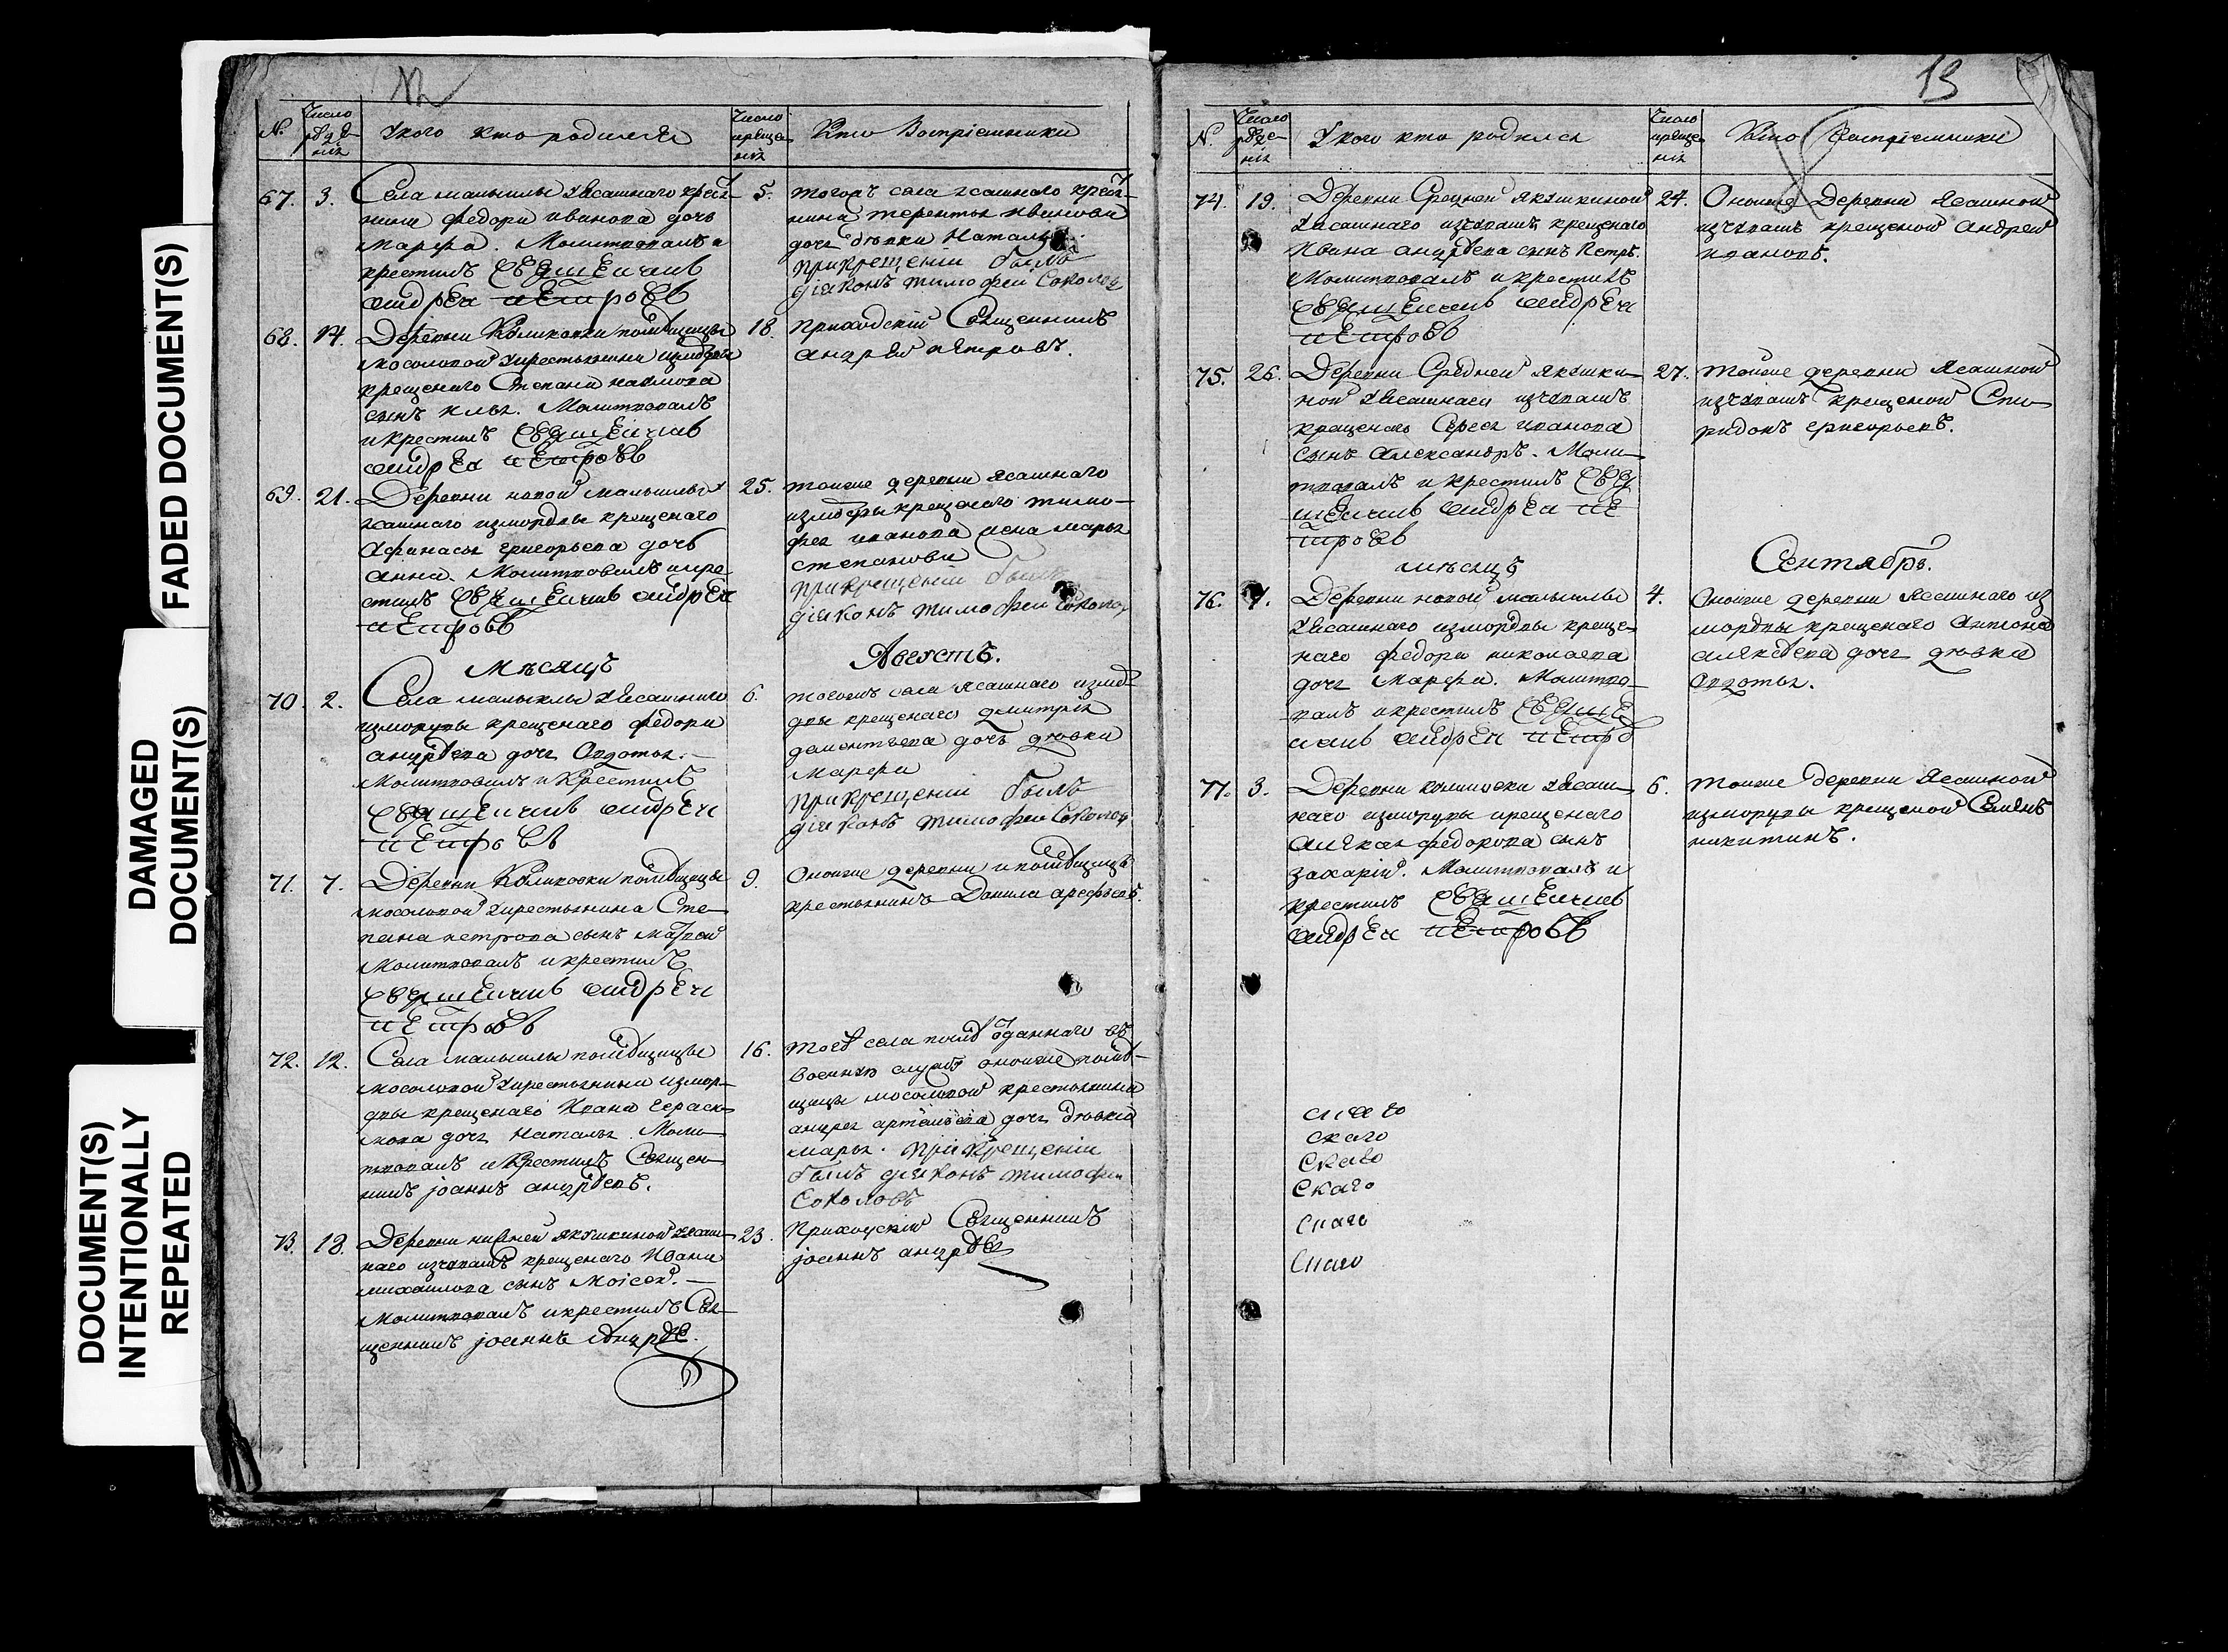 FADED DOCUMENT(S)
DAMAGED
DOCUMENT(S)
DOCUMENT(S)
INTENTIONALLY
REPEATED
№
Число
рожде-
нія
У кого кто родился
Число
креще-
нія
Кто Воспріемники
67.
3.
Села малыклы у Ясашнаго крест-
нина федора иванова дочь
марфа. Молитвовалъ и
крестилъ священникъ
андрей петровъ
5.
тогожъ села ясашнаго крест-
нина терентья иванова
дочь девка Наталья.
при крещеніи былъ
діяконъ тимофей Соколов
68.
14.
Деревни Коликовки помѣщицы
мосоловой у крестьянина измордвы
крещенаго Степана наумова
сынъ илья. Молитвовалъ
и крестилъ священникъ
андрей петровъ
18.
приходскій Священникъ
андрей петровъ.
69.
21.
Деревни новой малыклы у
ясашнаго измордвы крещенаго
Афанасья григорьева дочь
анна. Молитвовалъ и кре
стилъ священникъ андрей
петровъ
25.
тоиже деревни ясашнаго
измордвы крещенаго тимо-
фея иванова жена марья
степанова
при крещеніи былъ
діяконъ тимофей Соколов
Мѣсяцъ
Августъ.
70.
2.
Села малыклы у Ясашнаго
измордвы крещенаго федора
андрѣева дочь Овдотья.
Молитвовалъ и Крестилъ
священникъ андрей
петровъ
6.
тогожъ села ясашнаго измор
двы крещенаго дмитрія
дементьева дочь девка
марфа
при крещеніи былъ
діяконъ тимофей Соколов
71.
7.
Деревни Коликовки помѣщицы
мосоловой у крестьянина Сте-
пана петрова сынъ матвей
Молитвовалъ и крестилъ
священникъ андрей
петровъ
9.
Оноиже деревни и помѣщицы
крестьянинъ Данила арефьевъ.
72.
12.
Села малыклы помѣщицы
мосоловой у крестьянина измор-
двы крещенаго Ивана Гераси-
мова дочь Наталья. Моли-
твовалъ и Крестилъ Священ-
никъ іоаннъ андрѣевъ.
16.
тоей села отданнаго въ
военную службу оноиже помѣ-
щицы мосоловой крестьянина
андрея артемьева дочь девка
марья. при крещеніи
былъ діяконъ тимофей
Соколовъ
73.
18.
Деревни нижней якушкиной у ясаш-
наго изчувашъ крещенаго Ивана
михаилова сынъ Моісей.
Молитвовалъ и крестилъ Свя-
щенникъ іоаннъ Андрѣе.
23.
Приходскій Священникъ
іоаннъ андрѣев
13
№.
Число
рожде-
нія
У кого кто родился
Число
креще-
нія
Кто Воспріемники
74.
19.
Деревни Средней якушкиной
у ясашнаго изчувашъ крещенаго
Ивана андрѣева сынъ Петръ.
Молитвовалъ и крестилъ
священникъ андрей
петровъ
24.
Оноиже Деревни Ясашной
изчувашъ крещеной андрей
ивановъ.
75.
26.
Деревни Средней якушки-
ной у ясашнаго изчувашъ
крещенаго Сергея иванова
сынъ Александръ. Моли-
твовалъ и крестилъ свя
щенникъ андрей пе
тровъ
27.
тоиже деревни Ясашной
изчувашъ крещеной Спи-
ридонъ григорьевъ.
мѣсяцъ
Сентябрь.
76.
1.
Деревни новой малыклы
у Ясашнаго измордвы креще-
наго федора николаева
дочь Марфа. Молитво-
валъ и крестилъ священ
никъ андрей петро
4.
Оноиже деревни Ясашнаго из
мордвы крещенаго Антона
алексѣева дочь девка
Овдотья.
77.
3.
Деревни коликовки у ясаш-
наго измордвы крещенаго
Алексея федорова сынъ
захарій. Молитвовалъ и
крестилъ священникъ
андрей петровъ
6.
тоиже деревни Ясашной
измордвы крещеной Семенъ
никитинъ.
скаго
скаго
скаго
скаго